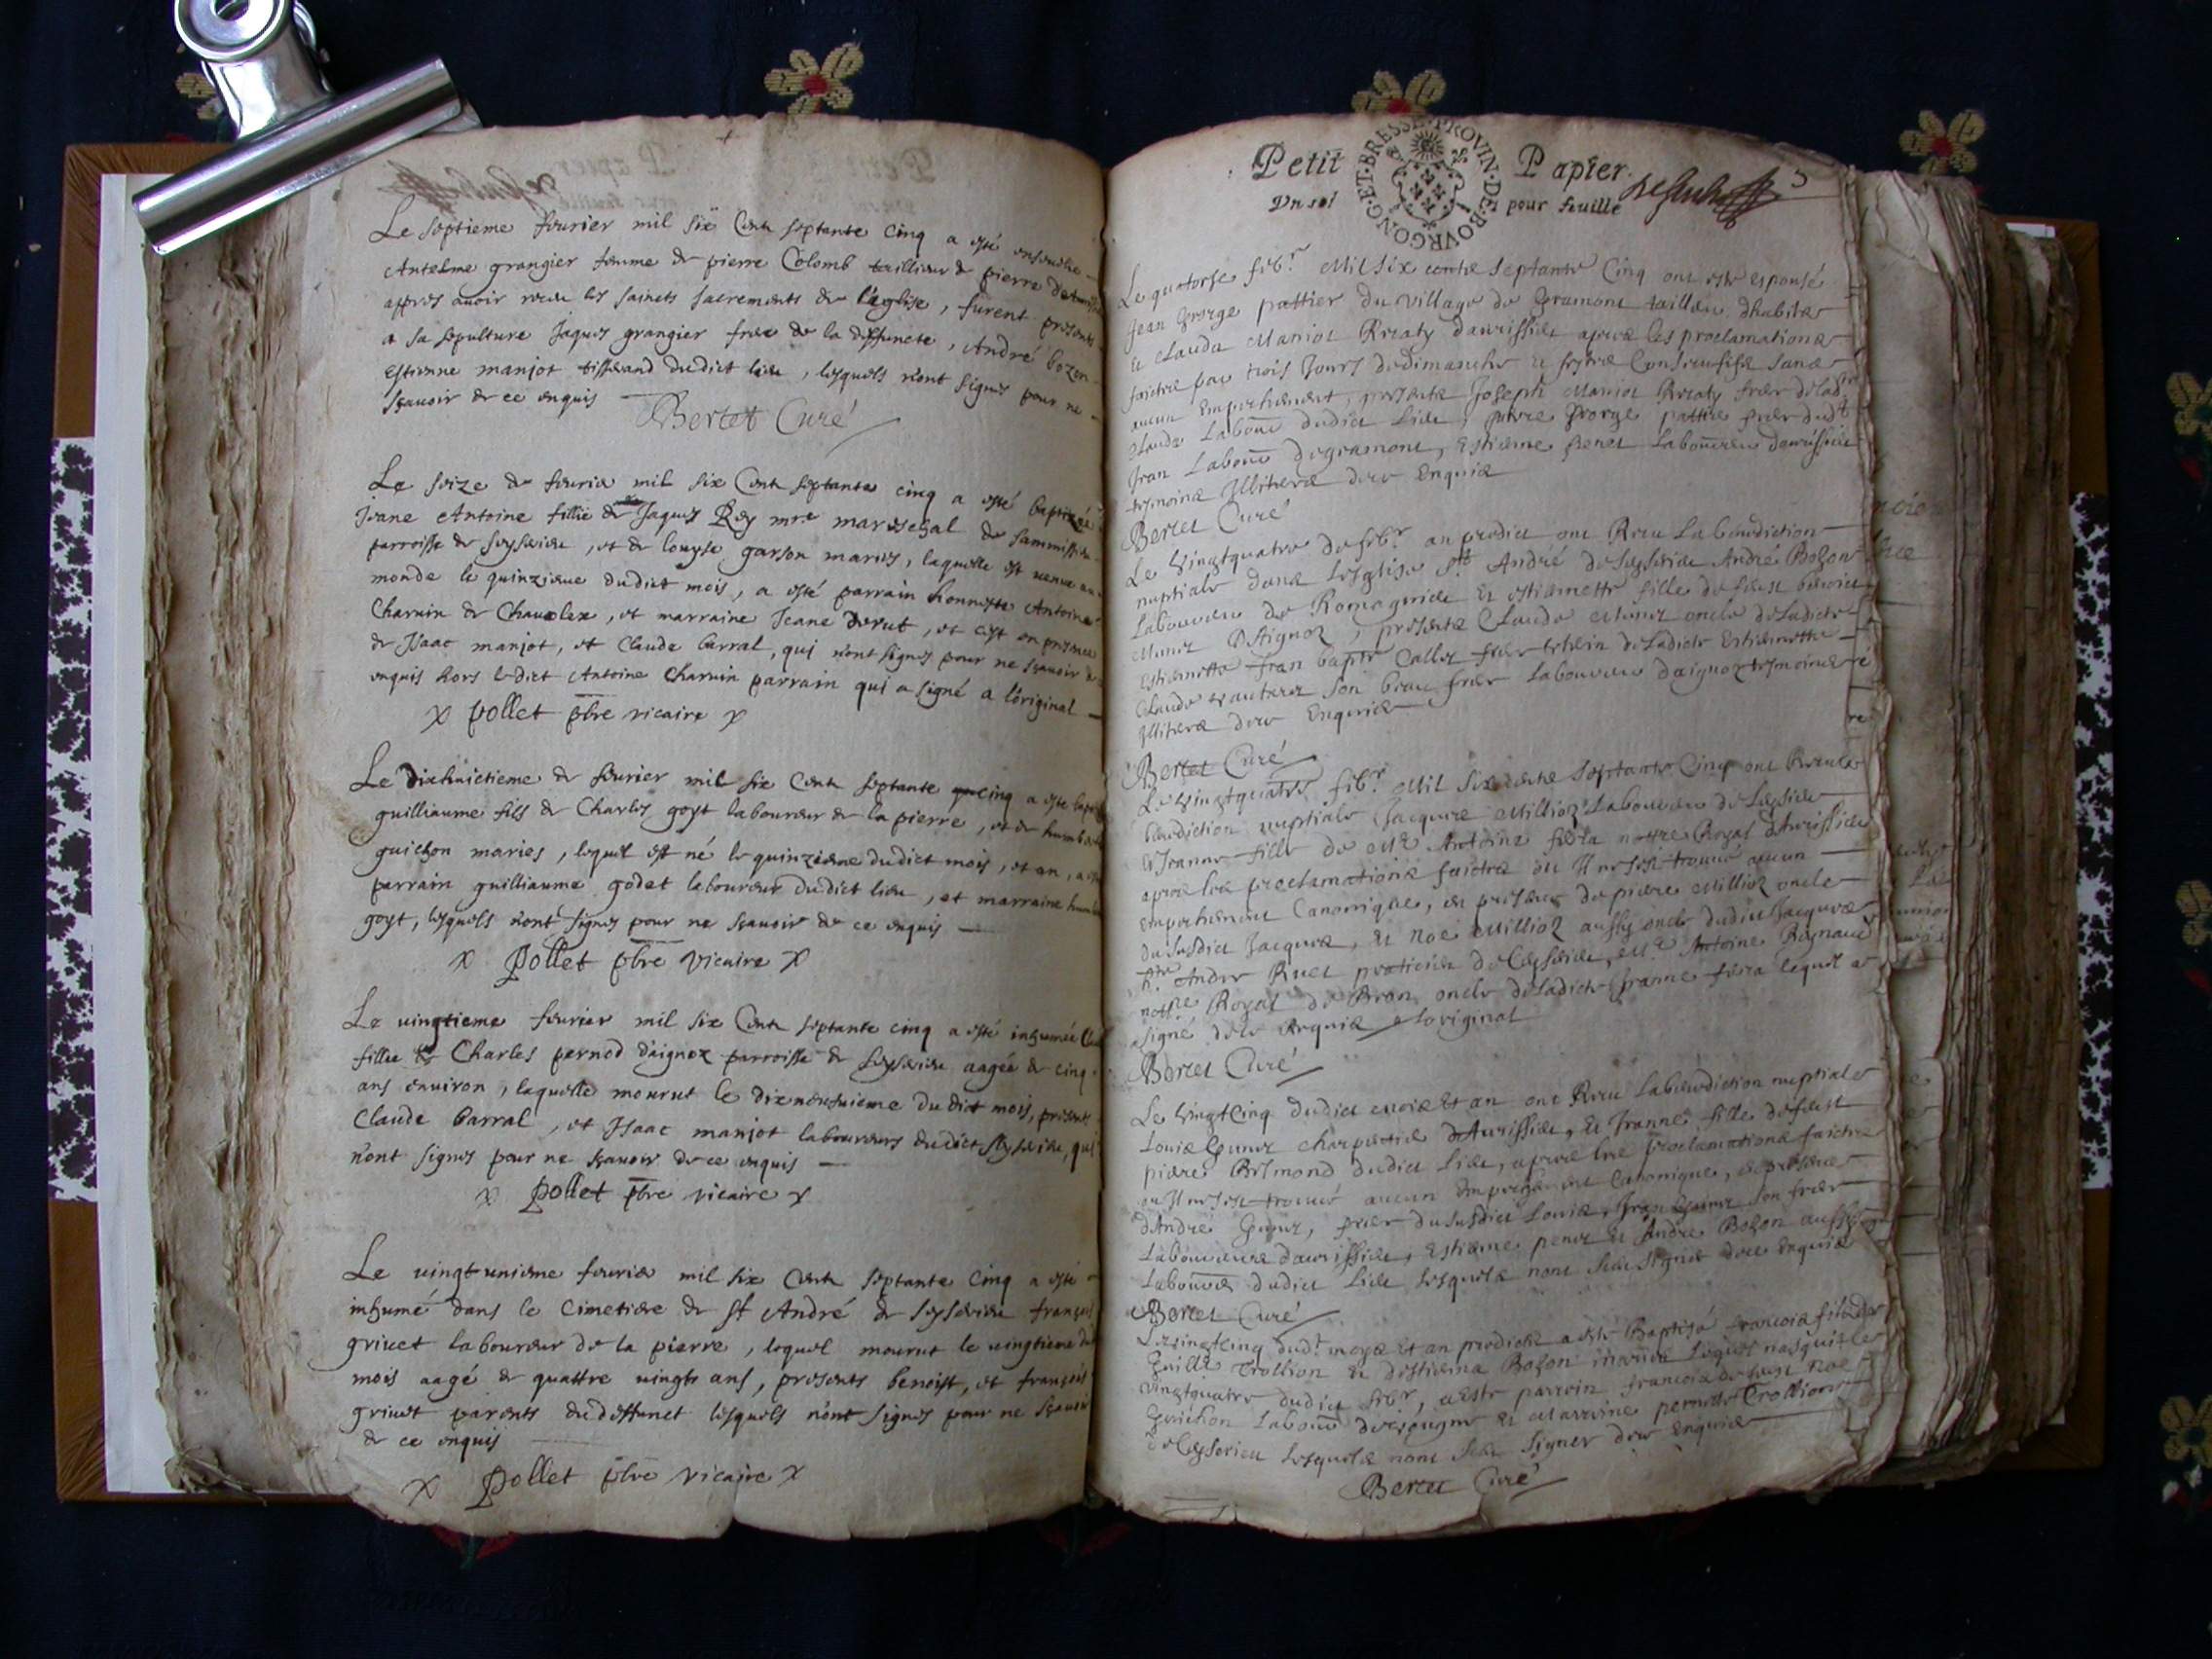 Le septieme feurier mil six Cents septante cinq a esté enseuelie
Antelme grangier femme de pierre Colomb tailleur de pierre
appres auoir receu les saincts sacrements de l'eglise, furent presents
a sa sepulture Jaques grangier frere de la deffuncte, André bozon
estienne manjot tisserand dudict lieu, lesquels n'ont signés pour ne
sçauoir de ce enquis
Bertet Curé
Le seize de feurier mil six Cents septante cinq a esté baptizée
Jeane Antoine fillie de Jaques Rey mre mareschal de
parroisse de seyserieu, et de louyse garson maries, laquelle est venue au
monde le quinzieme dudict mois, a esté parrain honneste Antoine
Charuin de Chauolex, et marraine Jeane Derut, et c'est en presence
de Isaac manjot, et Claude barral, qui n'ont signés pour ne sçauoir de
enquis hors ledict Antoine Charuin parrain qui a signé a l'original
x pollet pbre vicaire x
Le Dixhuictieme de feurier mil six Cents septante cinq a esté
guilliaume fils de Charles goyt laboureur de la pierre, et de
guichon maries, lequel est né le quinzieme dudict mois, et an, a
parrain guilliaume godet laboureur dudict lieu, et marraine
goyt, lesquels n'ont signés pour ne sçauoir de ce enquis
x Pollet pbre Vicaire x
Le uingtieme feurier mil six Cents septante cinq a esté inhumée
fillie de Charles pernod d'aignoz parroisse de seyserieu aagée de cinq
ans enuiron, laquelle mourut le dixneufuieme dudict mois, presents
Claude barral, et Isaac manjot laboureurs dudict seyserieu, qui
n'ont signés pour ne sçauoir de ce enquis
x pollet pbre vicaire x
Le uingt unieme feurier mil six Cents septante cinq a esté
inhumé dans le Cimetiere de st André de seyserieu françois
griuet laboureur de la pierre, lequel mourut le uingtieme du
mois aagé de quattre uingts ans, presents benoist, et françois
griuet parents du deffunct lesquels n'ont signés pour ne sçauoir
de ce enquis
x pollet pbre vicaire x
Petit Papier.
Vn sol pour feuille
BOVRGONG·ET·BRESSE·PROVIN·DE·
5
Le quatorse febr. Mil Six cents Septante Cinq ont esté espousé
Jean george pattier du village de gramont
et Clauda Manjot Recaty apres les proclamations
faictes par trois Jours de Dimanche et festes sans
aucun Empechement, presents Joseph Manjot Recaty frere de lad.
Clauda Labour dudict Lieu, pierre george pattier frere dud.
Jean Labour de gramont, Estienne penet Laboureur
tesmoins Illiteres de ce Enquis
Bertet Curé
Le Vingtquatre de febr. an predict ont Receu La benediction
nuptiale dans Lesglise St André de seyserieu André Bozon
Laboureur de Romagnieu Et estiennette fille de feu benoict
Munet D'Aignoz, presents Claude Munet oncle de Ladicte
Estiennette Jean bapte Callet frere de Ladicte Estiennette
Claude son beau frere Laboureur d'aignoz tesmoins
Illiteres de ce Enquis
Bertet Curé
Le Vingtquatre febr. Mil Six cents Septante Cinq ont Receu la
benediction nuptiale Jacques Millioz Laboureur de
et Jeanne fille de Me Antoine nottre Royal
apres les proclamations faictes ou Il ne sest trouué aucun
empechement Canonique, en presence de pierre Millioz oncle
du susdict Jacques, Et Noé Millioz aussy oncle dudict Jacques
hte André Ruet praticien de Ceyserieu, Me Antoine Reynaud
nottre Royal de oncle de Ladicte Jeanne lequel a
signé de ce Requis a Loriginal
Bertet Curé
Le Vingtcinq dudict mois Et an ont Receu La benediction nuptiale
Louis charpentier, Et Jeanne fille de feu
pierre dudict Lieu, apres les proclamations faictes
ou Il ne sest trouué aucun Empechement Canonique, en presence
d'André frere du susdict Louis, Jean son frere
Laboureurs, Estienne penet Et André Bozon aussy
Laboureurs dudict Lieu Lesquels nont sceu signer de ce Enquis
Bertet Curé
Le Vingtcinq dudt moys Et an predict a esté Baptisé francois fils de
Guille Trollion Et Destienna Bozon mariés Lequel nasquit le
vingtquatre dudict febr, a Esté parrein francois de feu Noé
guichon Labour Et Marreine pernette Trollion
de Ceyserieu Lesquels nont sceu Signer de ce Enquis
Bertet Curé